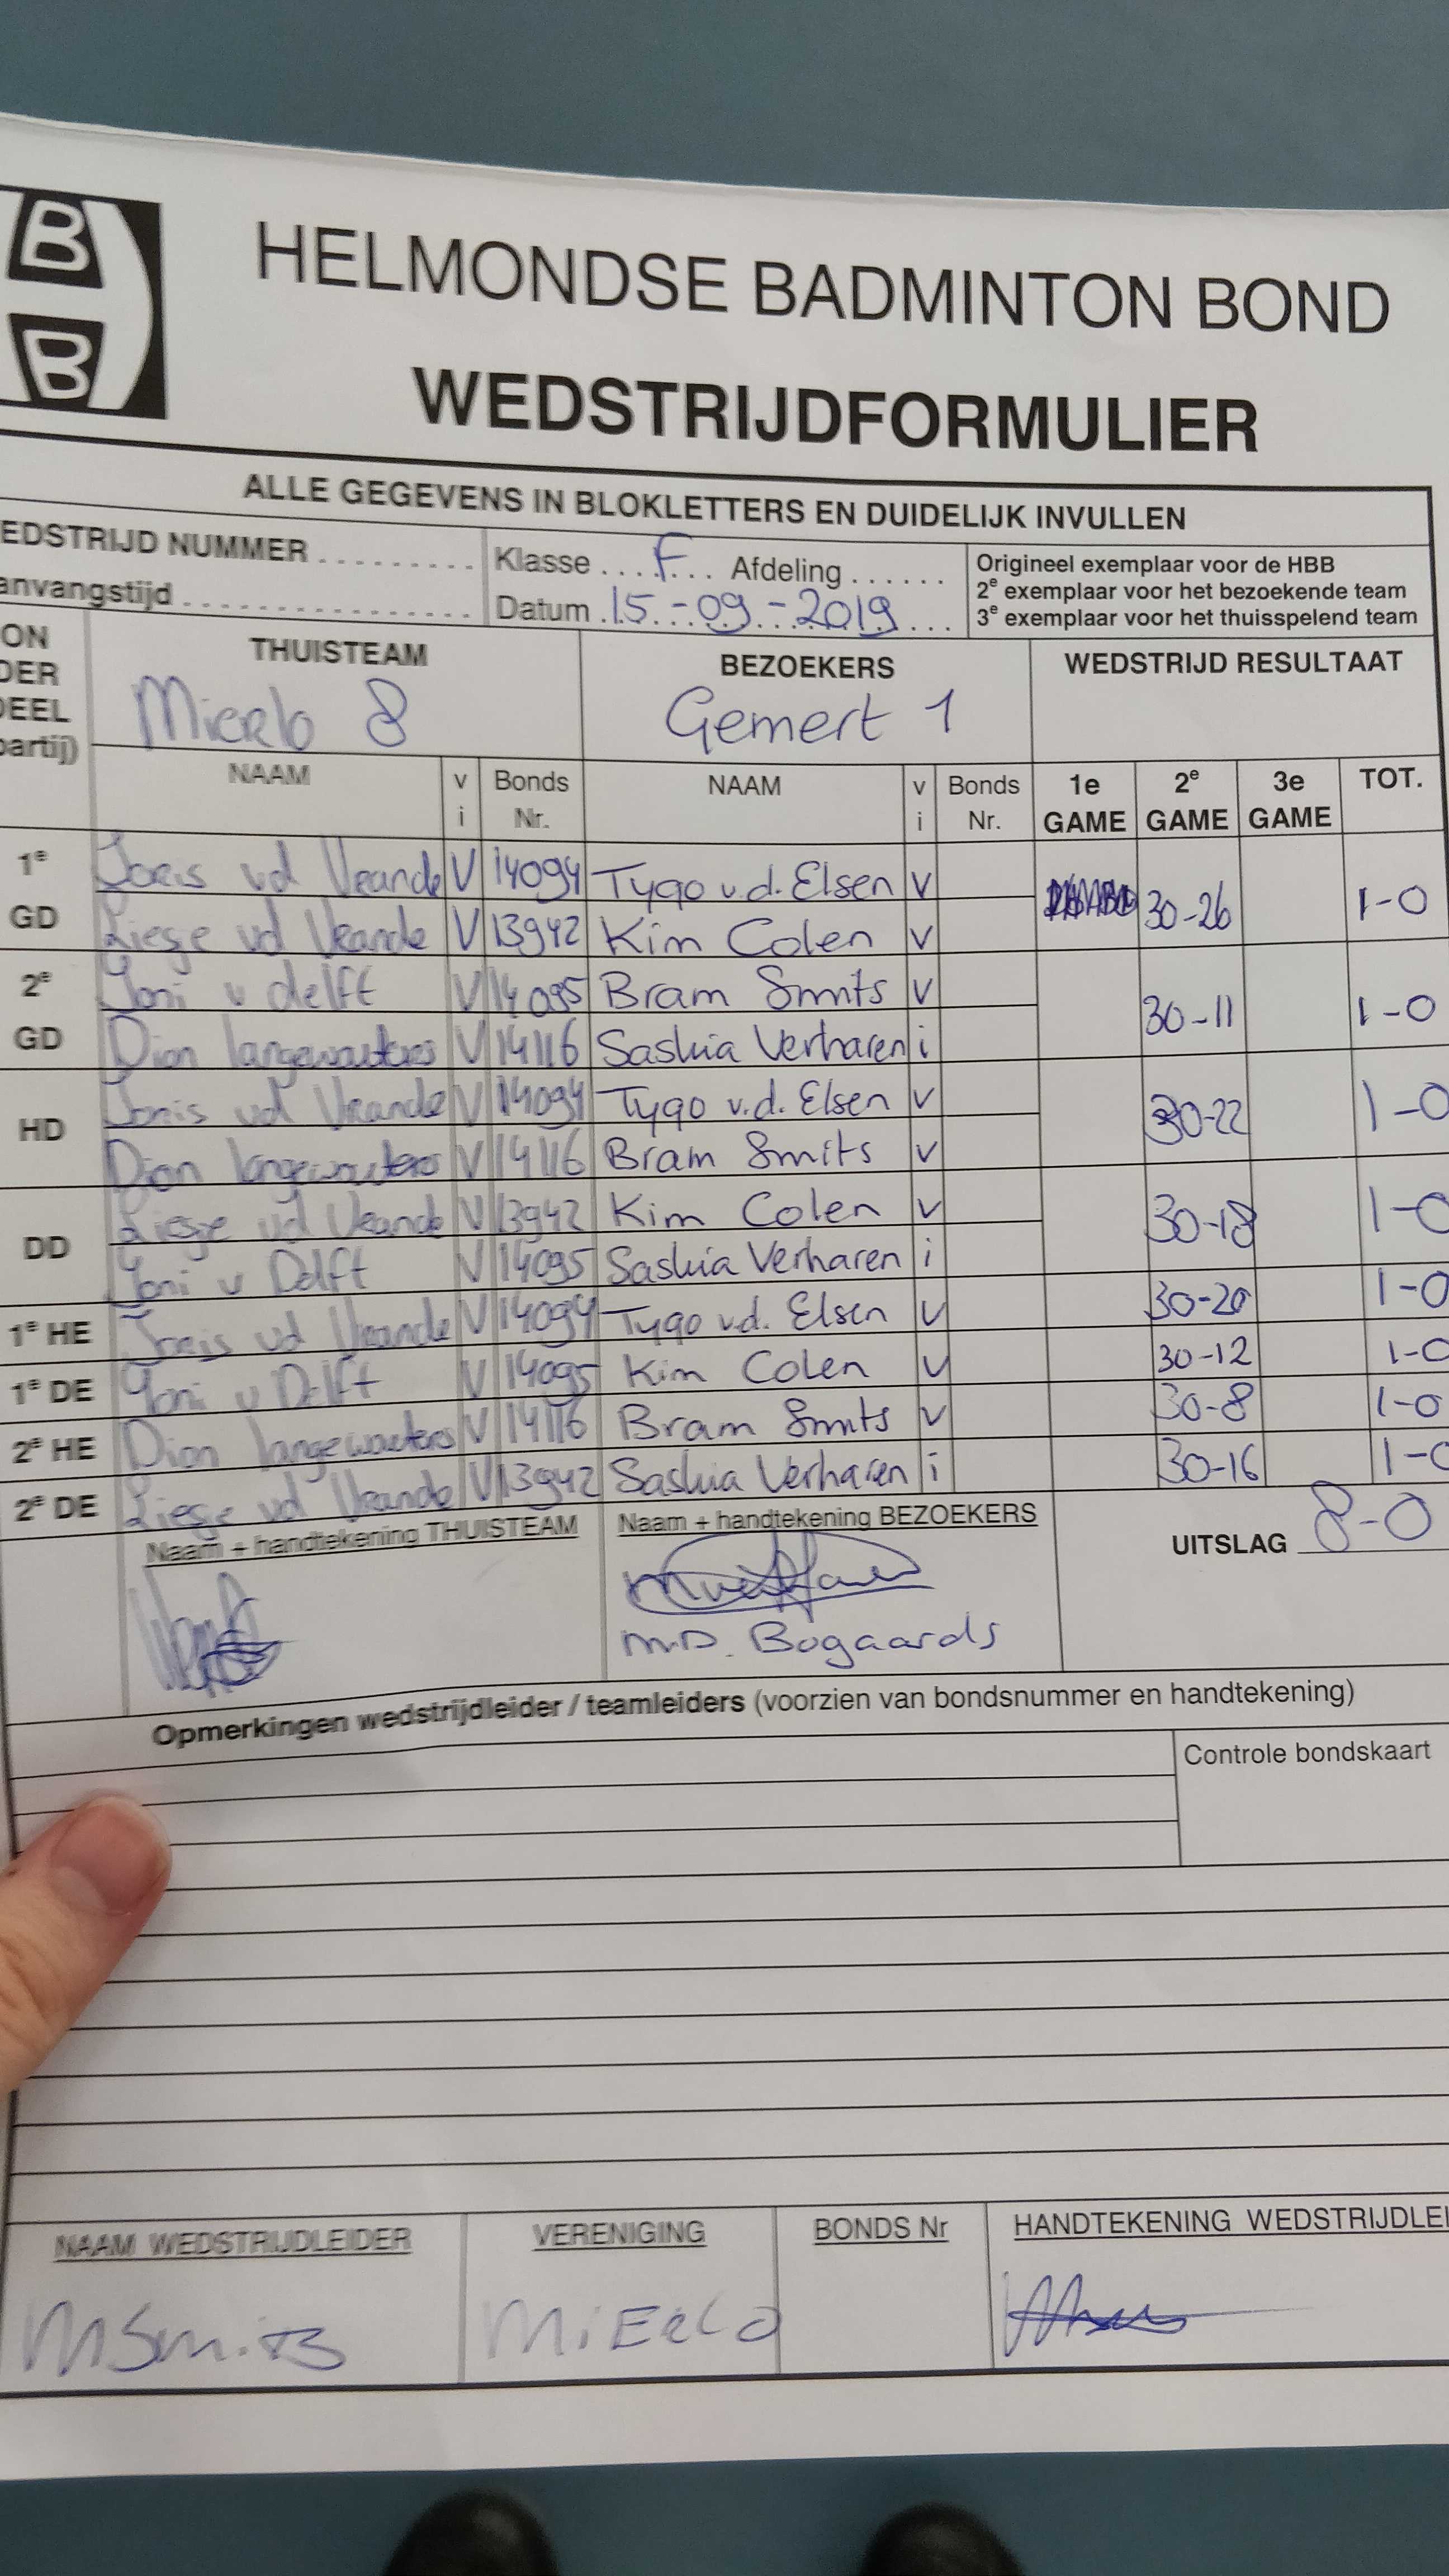 B
B
HELMONDSE BADMINTON BOND
WEDSTRIJDFORMULIER
ALLE GEGEVENS IN BLOKLETTERS EN DUIDELIJK INVULLEN
EDSTRIJD NUMMER .........
Klasse .... F ... Afdeling ......
Origineel exemplaar voor de HBB
anvangstijd ................
Datum .15-09-2019...
2e exemplaar voor het bezoekende team
3e exemplaar voor het thuisspelend team
ON
DER
DEEL
partij)
THUISTEAM
BEZOEKERS
WEDSTRIJD RESULTAAT
Mierlo 8
Gemert 1
NAAM v i Bonds Nr. NAAM v i Bonds Nr. 1e GAME 2e GAME 3e GAME TOT.
1e GD
Joris vd Vrande V 14094 Tygo v.d. Elsen v
Liesje vd Vrande V 13942 Kim Colen v
30-26 1-0
2e GD
Yoni v delft V 14095 Bram Smits v
Dion langewouters V 14116 Saskia Verharen i
30-11 1-0
HD
Joris vd Vrande V 14094 Tygo v.d. Elsen v
Dion langewouters V 14116 Bram Smits v
30-22 1-0
DD
Liesje vd Vrande V 13942 Kim Colen v
Yoni v Delft V 14095 Saskia Verharen i
30-18 1-0
1e HE Joris vd Vrande V 14094 Tygo v.d. Elsen v 30-20 1-0
1e DE Yoni v Delft V 14095 Kim Colen v 30-12 1-0
2e HE Dion langewouters V 14116 Bram Smits v 30-8 1-0
2e DE Liesje vd Vrande V 13942 Saskia Verharen i 30-16 1-0
Naam + handtekening THUISTEAM
Naam + handtekening BEZOEKERS
UITSLAG 8-0
M.D. Bogaards
Opmerkingen wedstrijdleider / teamleiders (voorzien van bondsnummer en handtekening)
Controle bondskaart
NAAM WEDSTRIJDLEIDER
VERENIGING
BONDS Nr
HANDTEKENING WEDSTRIJDLEI
M Smits
MiERLO